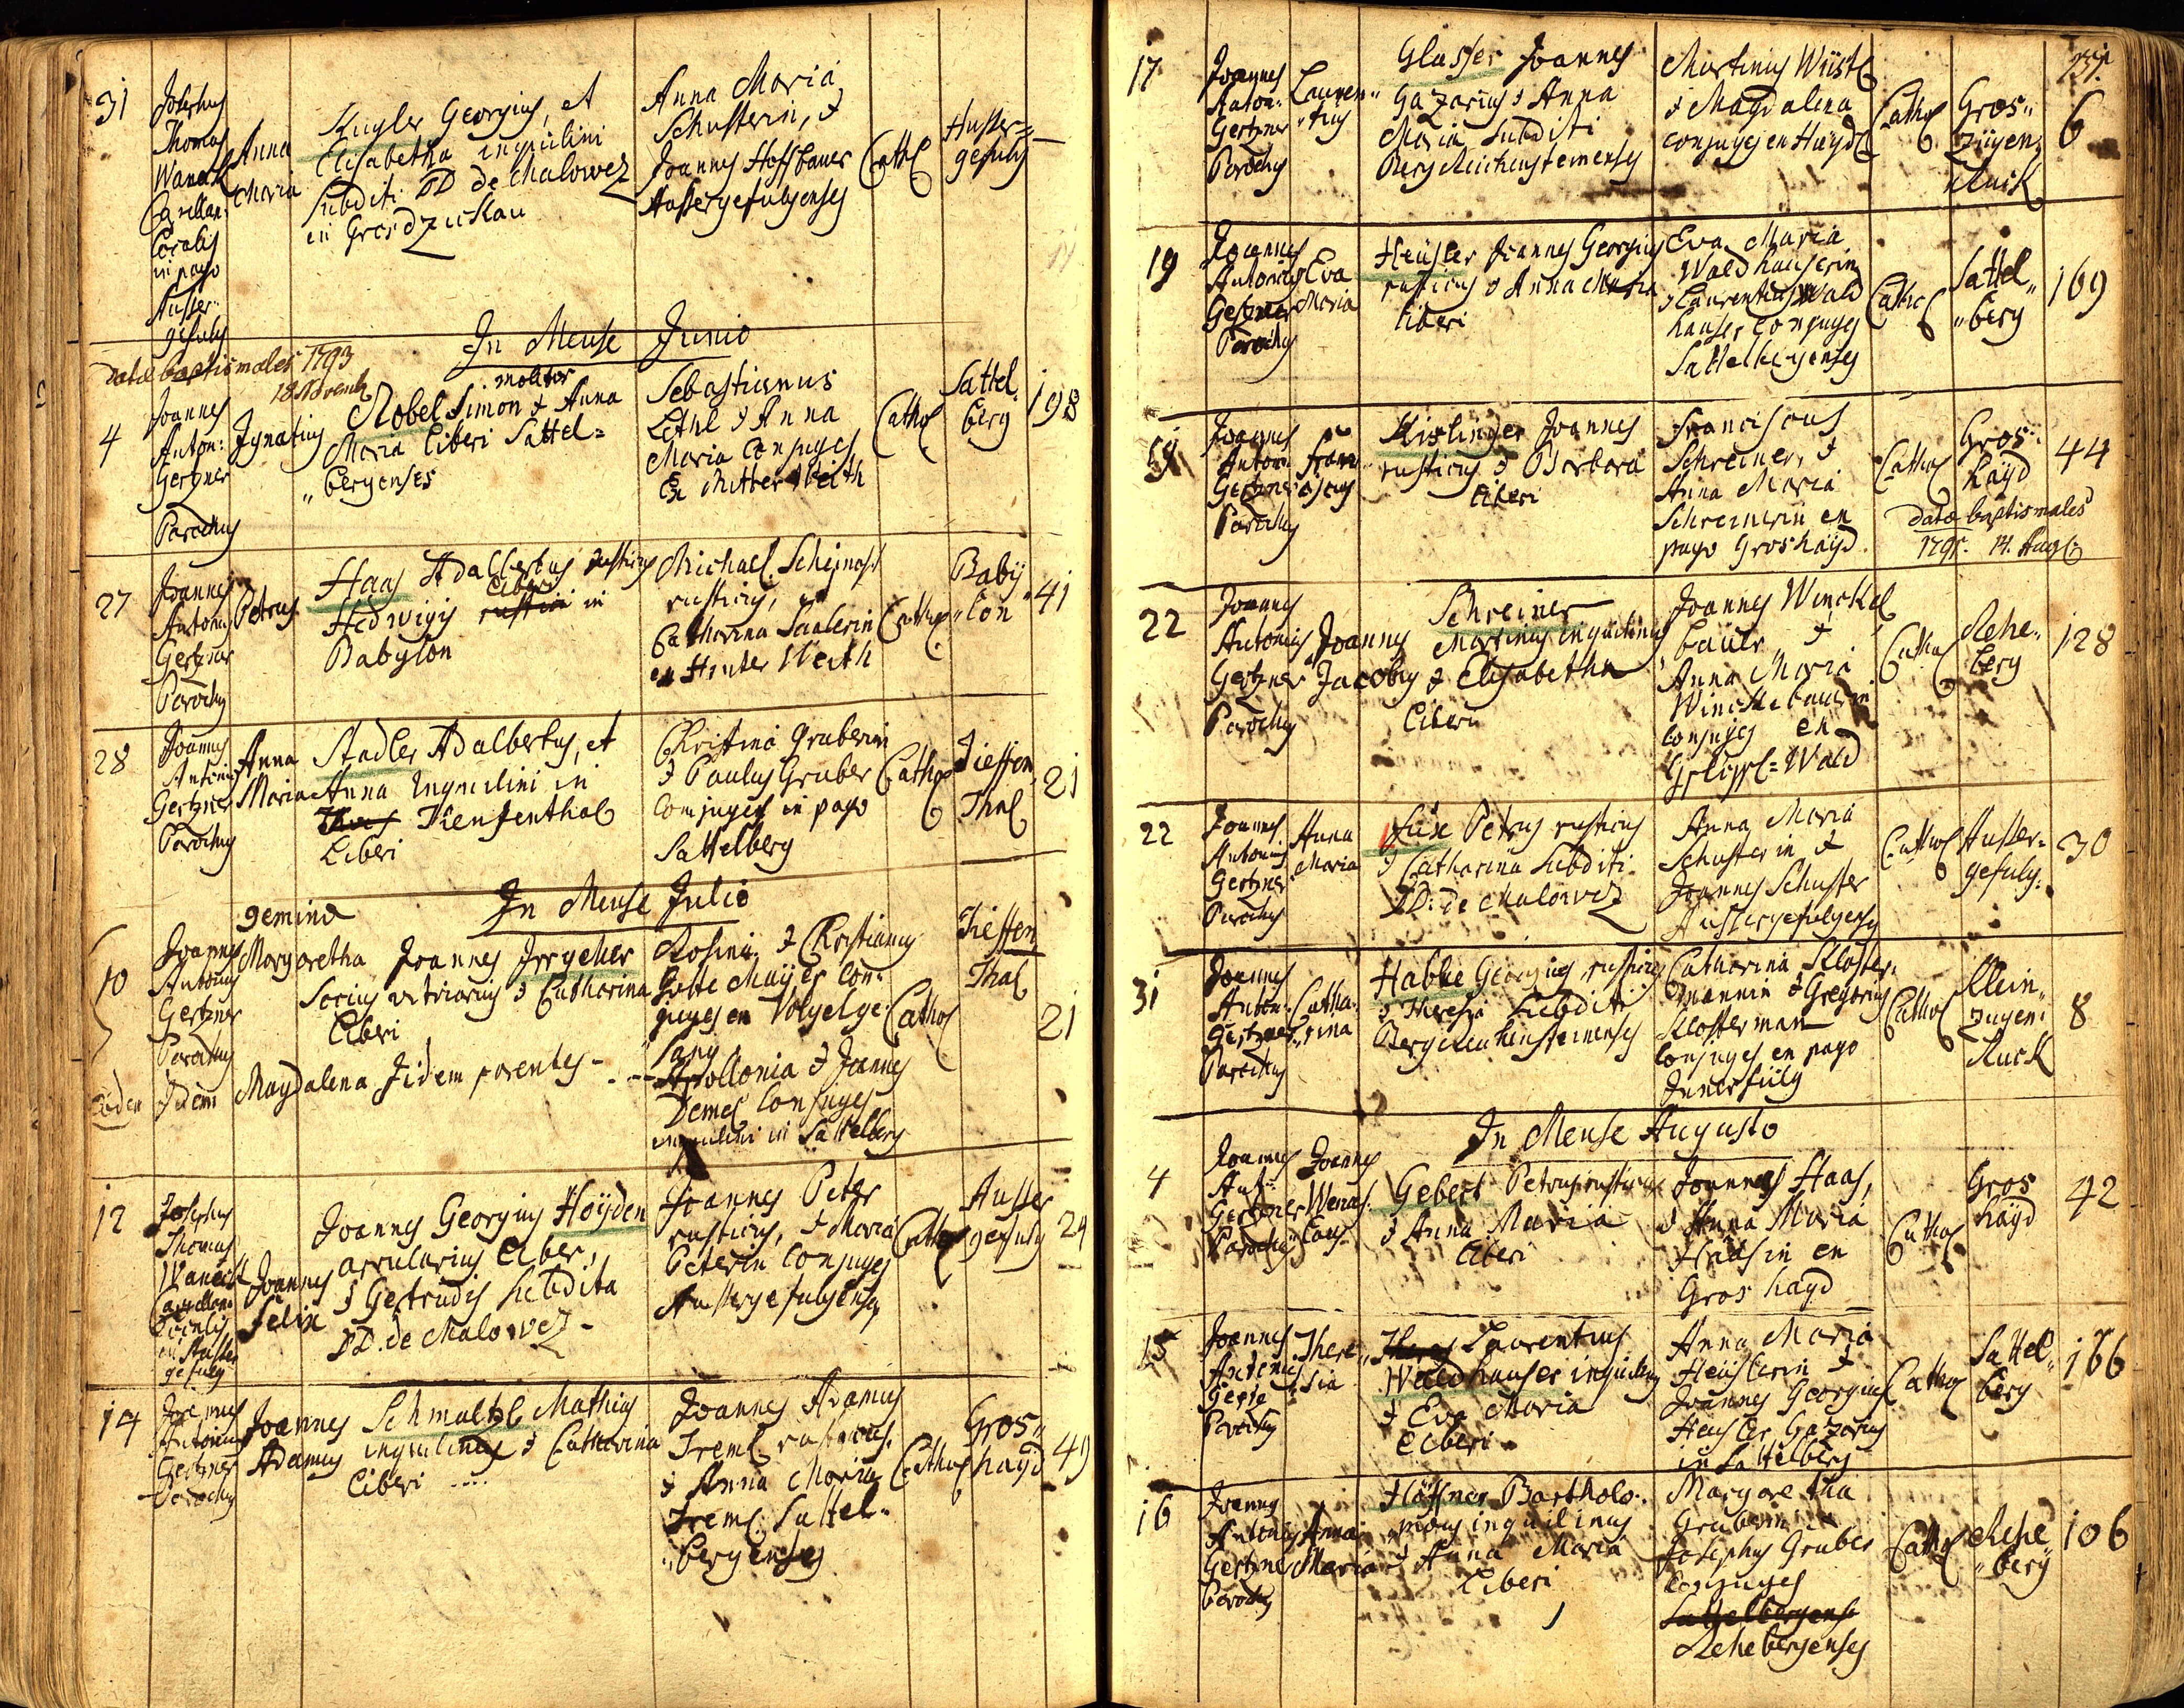 31
Josephus
Thomas
Waneck
Capellan:
Localis
in pago
Ausser-
gefuly
Anna
Maria
Kugler Georgius, et
Elisabetha inquilini
Subditi DD de Malowez
in Grosdzickau
Anna Maria
Schusterin, &
Joannes Hoffbauer
Aussergefulyenses
Cathol
Ausser=
gefuly
In Mense Junio
datæ baptismales 1793
18 Novemb
4
Joannes
Anton:
Gertzner
Parochus
Ignatius
molitor
Nobel Simon & Anna
Maria liberi Sattel=
"bergenses
Sebastianus
Lethl & Anna
Maria Conjuges
Ex Mitter Weith
Cathol
Sattel
berg
198
27
Joannes
Antonius
Gertzner
Parochus
Petrus
Haas Adalbertus rusticus
Hedwigis liberi in
Babylon
Michael
rusticus, et
Catharina
ex Hinter Weith
Cathol
Baby
"lon"
41
28
Joannes
Antonius
Gertzner
Parochus
Anna
Maria
Stadler Adalbertus, et
Anna Inquilini in
Tiefenthal
Liberi
Christina Gruberin
& Paulus Gruber
Conjuges in pago
Sattelberg
Cathol
Tieffen
Thal
21
In Mense Julio
geminæ
10
Joannes
Antonius
Gertzner
Parochus
Margaretha
Joannes Irrgeher
Socius vitriarius & Catharina
Liberi
Rosina & Christianus
Gotte Mayer Con=
juges en Vogelge=
sang
Cathol
Tieffen
Thal
21
Eodem
Idem
Magdalena
Iidem parentes -
Apollonia & Joannes
Demel Conjuges
inquilini in Sattelberg
12
Josephus
Thomas
Waneck
Capellan:
Localis
in Ausser
gefuly
Joannes
Felix
Joannes Georgius Höyden
arcularius liber,
& Gertrudis Subdita
DD. de Malowez -
Joannes Peter
rusticus, & Maria
Peterin Conjuges
Aussergefulyenses
Cathol
Ausser
gefuly
24
14
Joannes
Antonius
Gertzner
Parochus
Joannes
Adamus
Schmaltzl Mathias
inquilinus & Catharina
Liberi ....
Joannes Adamus
Treml rusticus,
& Anna Maria
Treml Sattel=
"bergenses
Cathol
Gros"
hayd
49
17
Joannes
Anton:
Gertzner
Parochus
Lauren"
"tius
Glasser Joannes
Gazarius & Anna
Maria Subditi
BergReichensteinenses
Martinus Wüstl
& Magdalena
conjuges en Hayd
Cathol
Gros"
züyen"
Ruck
6
19
Joannes
Antonius
Gertzner
Parochus
Eva
Maria
Heüsler Joannes Georgius
rusticus & Anna Maria
liberi
Eva Maria
Waldhauserin
& Laurentius Wald
hauser Conjuges
Sattelbergenses
Cathol
Sattel"
"berg
169
Joannes
Anton:
Gertzner
Parochus
Fran"
ciscus
Kislinger Joannes
rusticus & Barbara
liberi
Franciscus
Schreiner, &
Anna Maria
Schreinerin en
pago Groshayd.
Cathol
Gros"
hayd
44
datæ baptismales
22
Joannes
Antonius
Gertzner
Parochus
Joannes
Jacobus
Schreiner
Martinus inquilinus
& Elisabetha
Liberi
Joannes Winckel
bauer &
Anna Maria
Winckelbaurin
conjuges en
Wald
Cathol
Rehe"
berg
128
22
Joannes
Antonius
Gertzner
Parochus
Anna
Maria
Füx Petrus rusticus
& Catharina Subditi
DD: de Malowez
Anna Maria
Schusterin &
Joannes Schuster
Aussergefulyenses
Cathol
Ausser=
gefuly:
30
31
Joannes
Anton:
Gertzner
Parochus
Catha"
"rina
Hable Georgius rusticus
& Theresia Subditi
Bergreichensteinenses
Catharina Kloster"
mannin & Gregorius
Klosterman
Conjuges en pago
Innerfüly
Cathol
Klein"
zuyen"
Ruck
8
In Mense Augusto
4
Joannes
Ant:
Gertzner
Parochus
Joannes
Wences"
laus
Gebert Petrus rusticus
& Anna Maria
liberi
Joannes Haas,
& Anna Maria
Haasin en
Groshayd
Cathol
Gros
hayd
42
15
Joannes
Antonius
Parochus
There"
sia
Laurentius
Waldhauser inquilinus
& Eva Maria
Liberi
Anna Maria
Heüslerin &
Joannes Georgius
Heusler Gazarius
in Sattelberg
Cathol
Sattel"
berg
166
16
Joannes
Antonius
Gertzner
Parochus
Anna
Maria
Höffner Bartholo"
mæus inquilinus
& Anna Maria
Liberi
Margaretha
Gruberin &
Josephus Gruber
Conjuges
Sattelbergense
Rehebergenses
Cathol
Rehe"
"berg
106